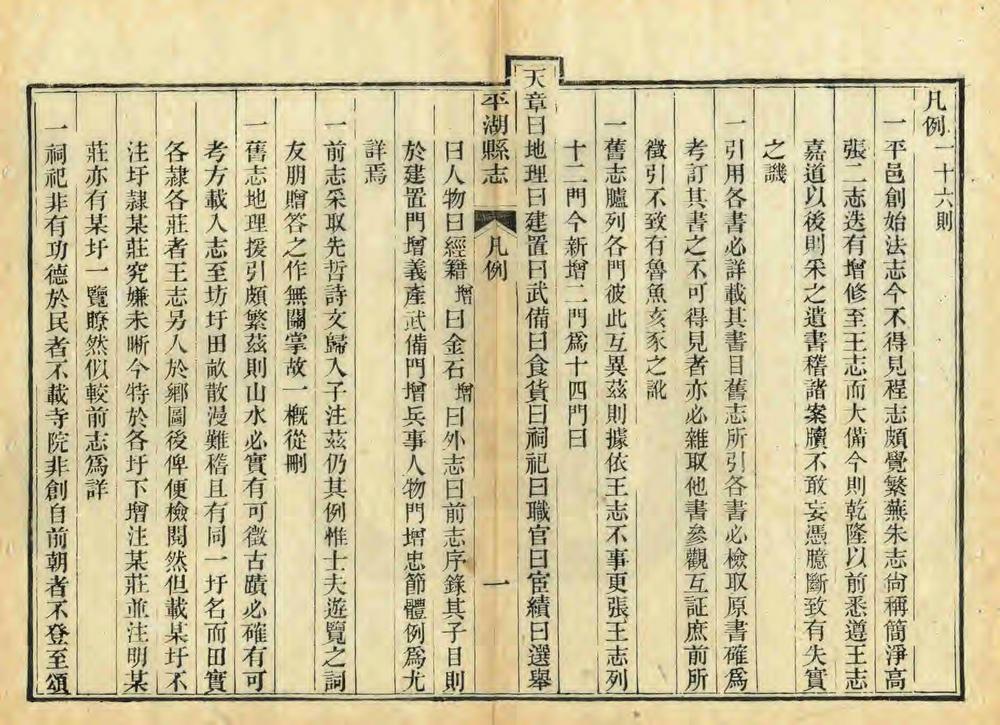 凡例一十六則
一平邑創始法志今不得見程志頗覺繁蕪朱志尙稱簡淨高
張二志迭有增修至王志而大備今則乾隆以前悉遵王志
嘉道以後則采之遺書稽諸案牘不敢妄憑臆斷致有失實
之譏
一引用各書必詳載其書目舊志所引各書必檢取原書確爲
考訂其書之不可得見者亦必雜取他書參觀互証庶前所
徵引不致有魯魚亥豕之訛
一舊志臚列各門彼此互異茲則據依王志不事更張王志列
十二門今新增二門爲十四門曰
天章曰地理曰建置曰武備曰食貨曰祠祀曰職官曰宦績曰選舉
平湖縣志 凡例 一
曰人物曰經籍增曰金石增曰外志曰前志序錄其子目則
於建置門增義產武備門增兵事人物門增忠節體例爲尤
詳焉
一前志采取先哲詩文歸入子注茲仍其例惟士夫遊覽之詞
友朋贈答之作無關掌故一槪從刪
一舊志地理援引頗繁茲則山水必實有可徵古蹟必確有可
考方載入志至坊圩田畝散漫難稽且有同一圩名而田實
各隷各莊者王志另入於鄉圖後俾便檢閱然但載某圩不
注圩隷某莊究嫌未晰今特於各圩下增注某莊並注明某
莊亦有某圩一覽瞭然似較前志爲詳
一祠祀非有功德於民者不載寺院非創自前朝者不登至頌